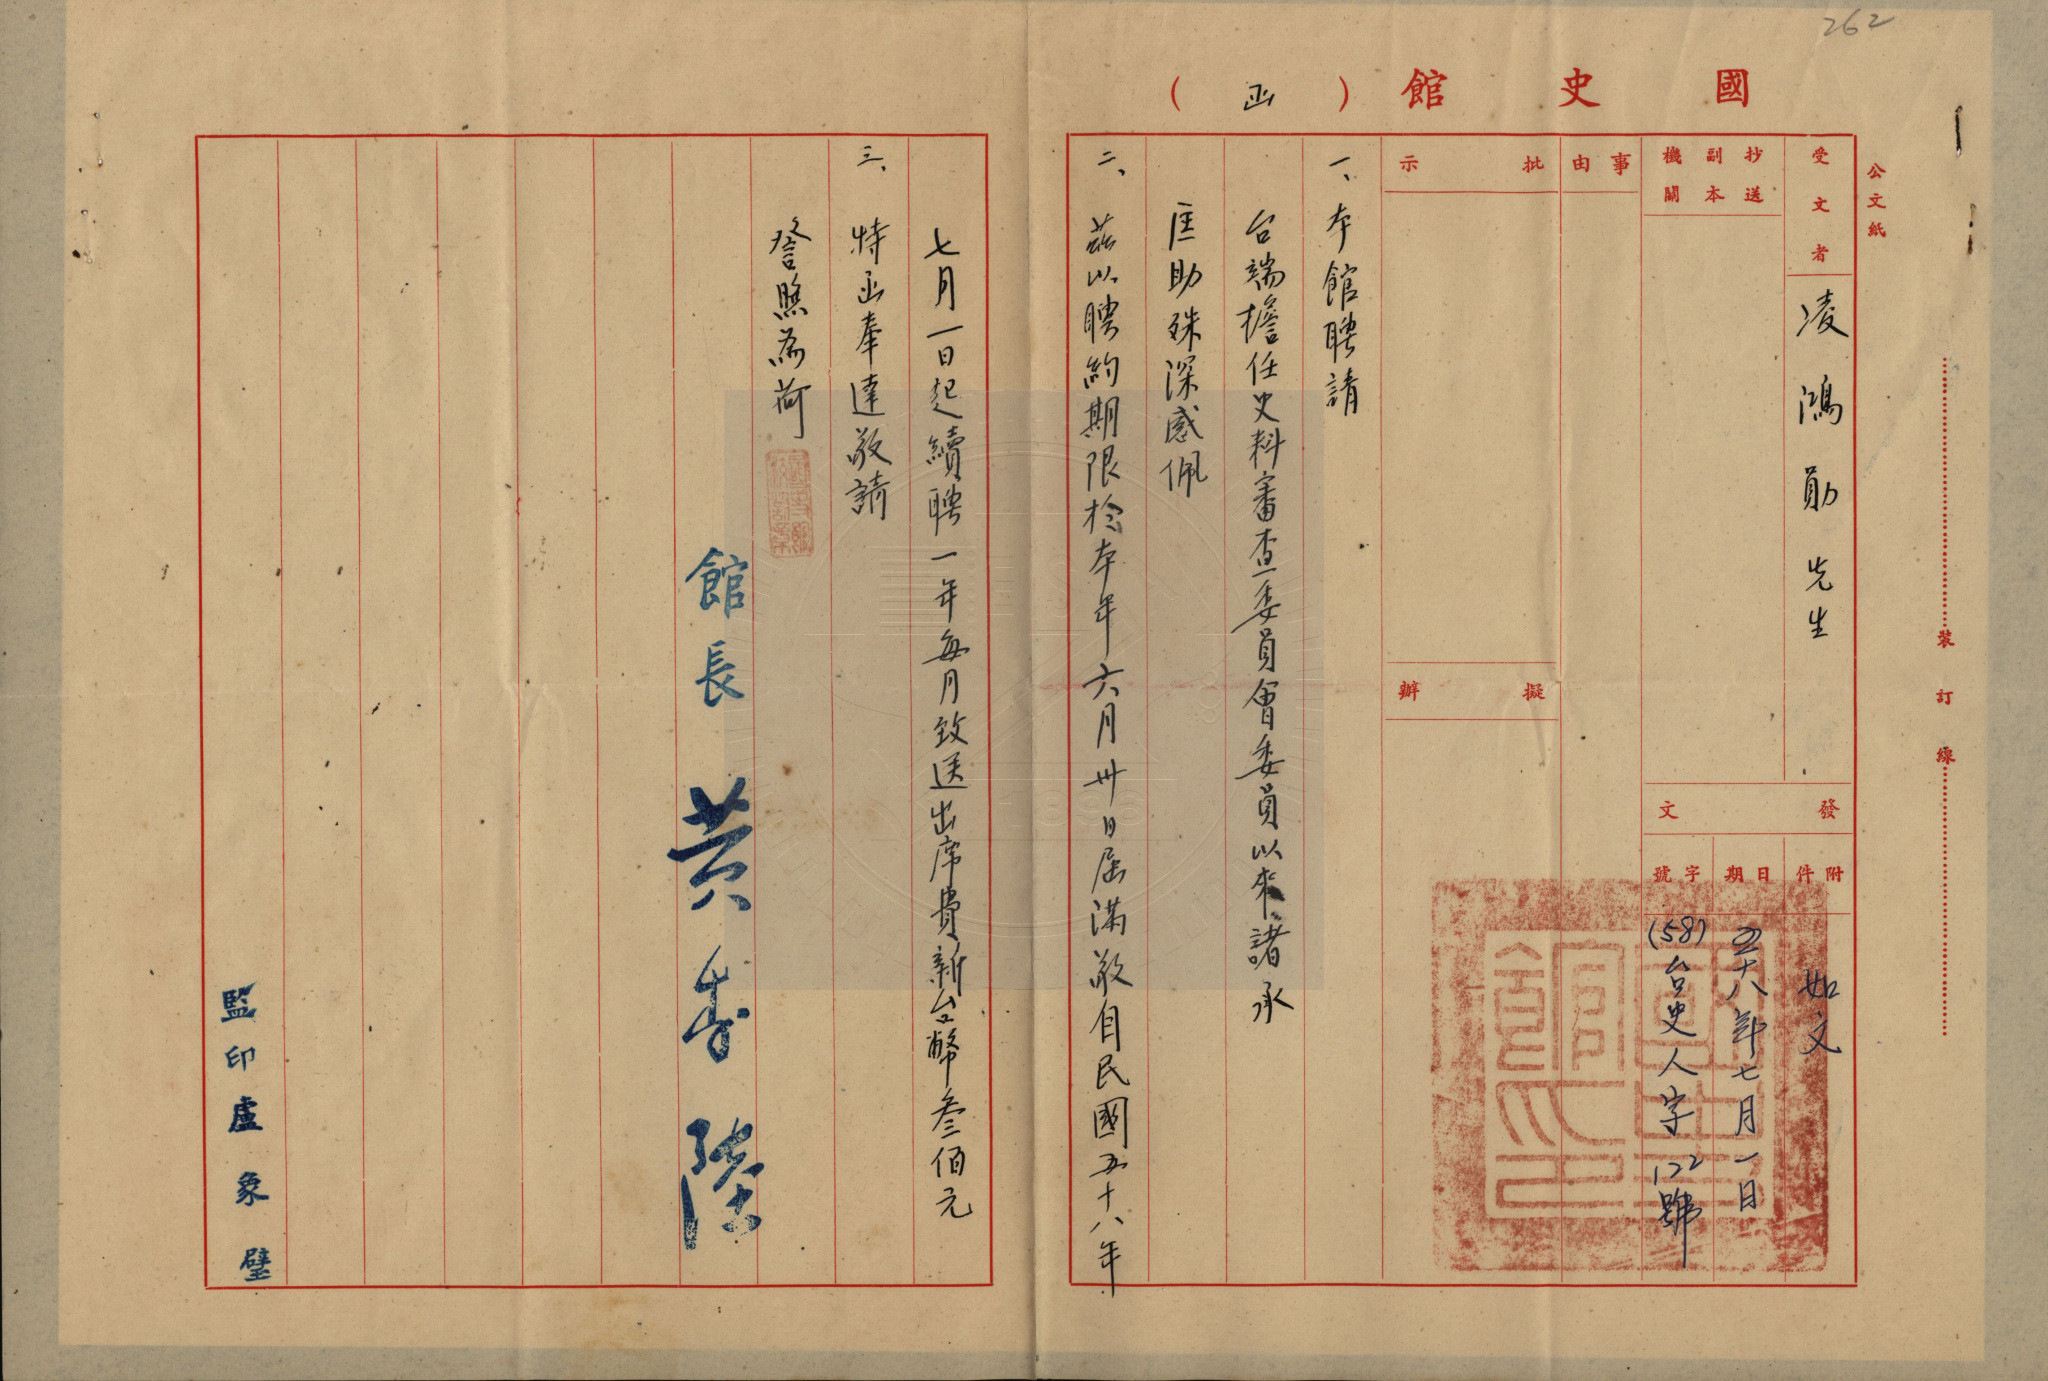 262
國史館（函）
公文紙
受文者
凌鴻勛先生
抄送副本機關
事由
批示
擬辦
發文
附件
如文
日期
五十八年七月一日
字號
(58)台史人字122號
裝訂線
一、本館聘請
台端擔任史料審查委員會委員以來諸承
匡助殊深感佩
二、茲以聘約期限於本年六月卅日屆滿敬自民國五十八年
七月一日起續聘一年每月致送出席費新台幣叁佰元
三、特函奉達敬請
詧照為荷
館長黃季陸
監印盧象璧